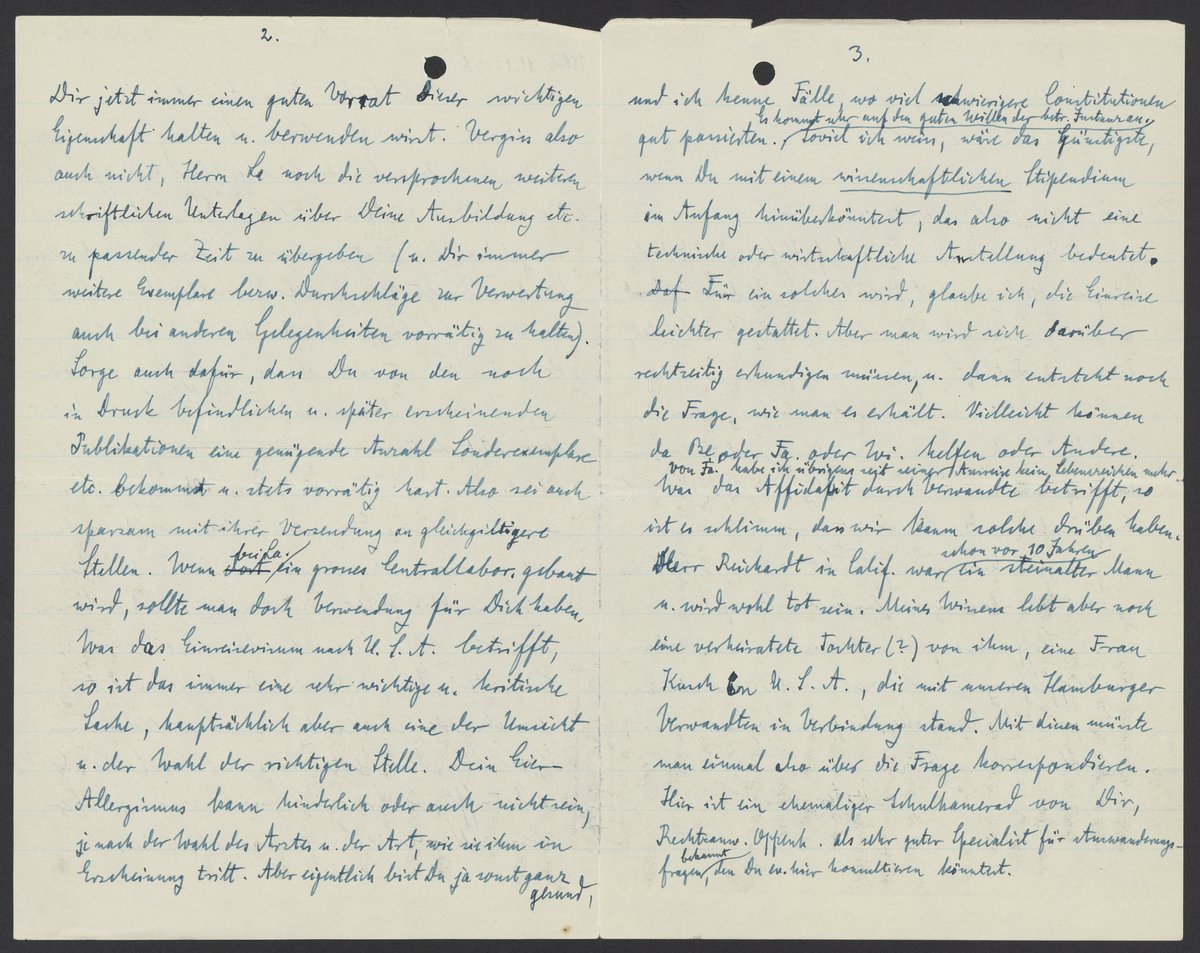 2.
Dir jetzt immer einen guten Vorrat dieser wichtigen
Eigenschaft halten u. verwenden wirst. Vergiss also
auch nicht, Herrn La noch die versprochenen weiteren
schriftlichen Unterlagen über Deine Ausbildung etc.
zu passender Zeit zu übergeben (u. Dir immer
weitere Exemplare bezw. Durchschläge zur Verwertung
auch bei anderen Gelegenheiten vorrätig zu halten).
Sorge auch dafür, dass Du von den noch
in Druck befindlichen u. später erscheinenden
Publikationen eine genügende Anzahl Sonderexemplare
etc. bekommst u. stets vorrätig hast. Also sei auch
sparsam mit ihrer Versendung an gleichgiltigere
bei La.
Stellen. Wenn dort ein grosses Centrallabor. gebaut
wird, sollte man doch Verwendung für Dich haben.
Was das Einreisevisum nach U. S. A. betrifft,
so ist das immer eine sehr wichtige u. kritische
Sache, hauptsächlich aber auch eine der Umsicht
u. der Wahl der richtigen Stelle. Dein Eier-
Allergismus kann hinderlich oder auch nicht sein,
je nach der Wahl des Arztes u. der Art, wie sie ihm in
Erscheinung tritt. Aber eigentlich bist Du ja sonst ganz
gesund,
3.
und ich kenne Fälle, wo viel schwierigere Constitutionen
Es kommt sehr auf den guten Willen der betr. Instanz an,
gut passierten. Soviel ich weiss, wäre das Günstigste,
wenn Du mit einem wissenschaftlichen Stipendium
im Anfang hinüberkönntest, das also nicht eine
technische oder wirtschaftliche Anstellung bedeutet.
Daf Für ein solches wird, glaube ich, die Einreise
leichter gestattet. Aber man wird sich darüber
rechtzeitig erkundigen müssen, u. dann entsteht noch
die Frage, wie man es erhält. Vielleicht können
da Be. oder Fa. oder Wi. helfen oder Andere.
von Fa. habe ich übrigens seit seiner Ausreise kein Lebenszeichen mehr.
Was das Affidafit durch Verwandte betrifft, so
ist es schlimm, dass wir kaum solche drüben haben.
schon vor 10 Jahren
Herr Reichardt in Calif. war ein steinalter Mann
u. wird wohl tot sein. Meines Wissens lebt aber noch
eine verheiratete Tochter (?) von ihm, eine Frau
Kusch in U. S. A., die mit unseren Hamburger
Verwandten in Verbindung stand. Mit diesen müsste
man einmal also über die Frage korrespondieren.
Hier ist ein ehemaliger Schulkamerad von Dir,
Rechtsanw. Oppenh. als sehr guter Specialist für Auswanderungs-
bekannt
fragen, den Du ev. hier konsultieren könntest.